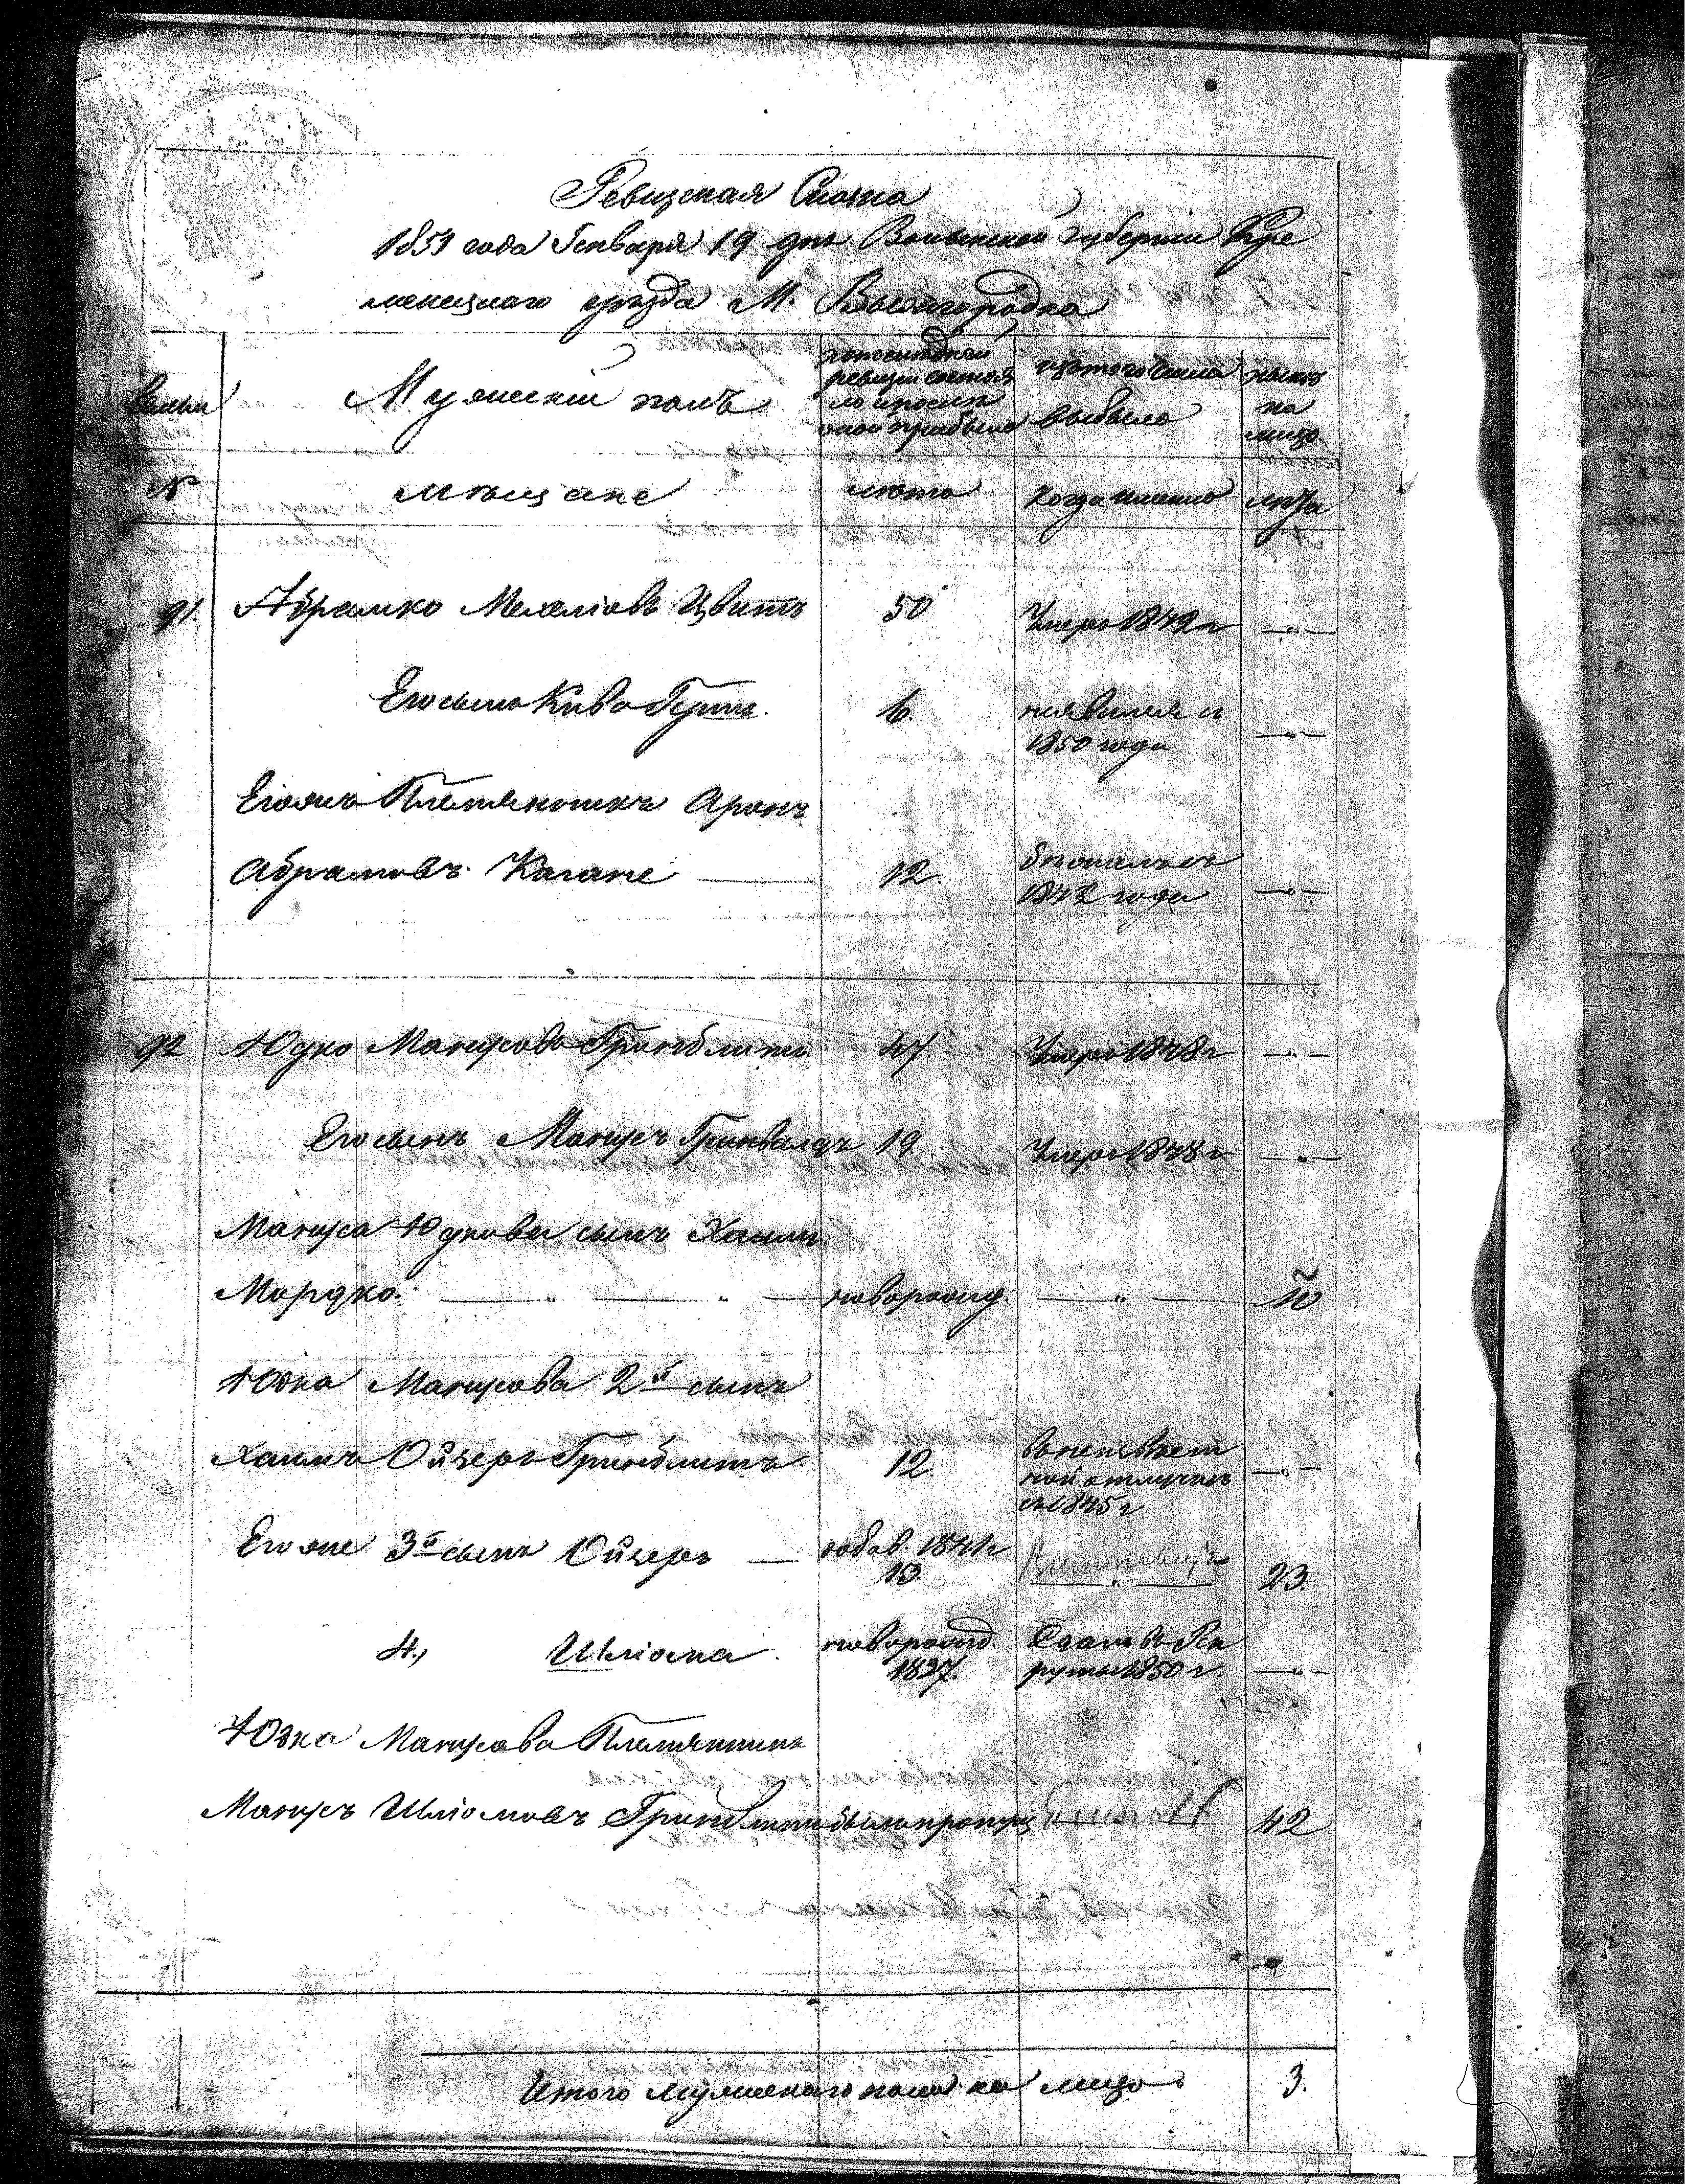 Ревизская Сказка
1851 года Генваря 19 дня Волынской губернии Кре
менецкаго уезда М. Вышгородка
Семьи
Мужескій полъ
по последней
ревизіи состоя
ло и после
оной прибыло
изъ того числа
выбыло
ныне
на
лицо
№
мещане
лета
когда именно
лета
91.
Абрамко Мехлювъ Цвитъ
50
Умеръ 1842 г
—"—
Его сынъ Кива
6.
1850 года
—"—
Егожъ Племянникъ Аронъ
Абрамовъ Кагане
12.
года
—"—
92
Юдко Манусовъ Гринблитъ
47
Умеръ 1848 г
—"—
Его сынъ Манусъ Гринвалдъ
19.
Умеръ 1848 г
—"—
Мануса Юдкова сынъ Хаимъ
Мордко.
новорожд.
—"—
10
Юдка Манусова 2й сынъ
Хаимъ Ойзеръ Гринблитъ
12.
отлучке
съ 1845 г
—"—
Его же 3й сынъ Ойзеръ
1841 г
13.
23.
4.,
Шліома
новорожд.
1837.
Сданъ въ Рек
руты 1850 г.
—"—
Юдка Манусова Племянникъ
Манусъ Шліомовъ Гринблитъ былъ пропущ
42
Итого мужескаго пола на лицо
3.